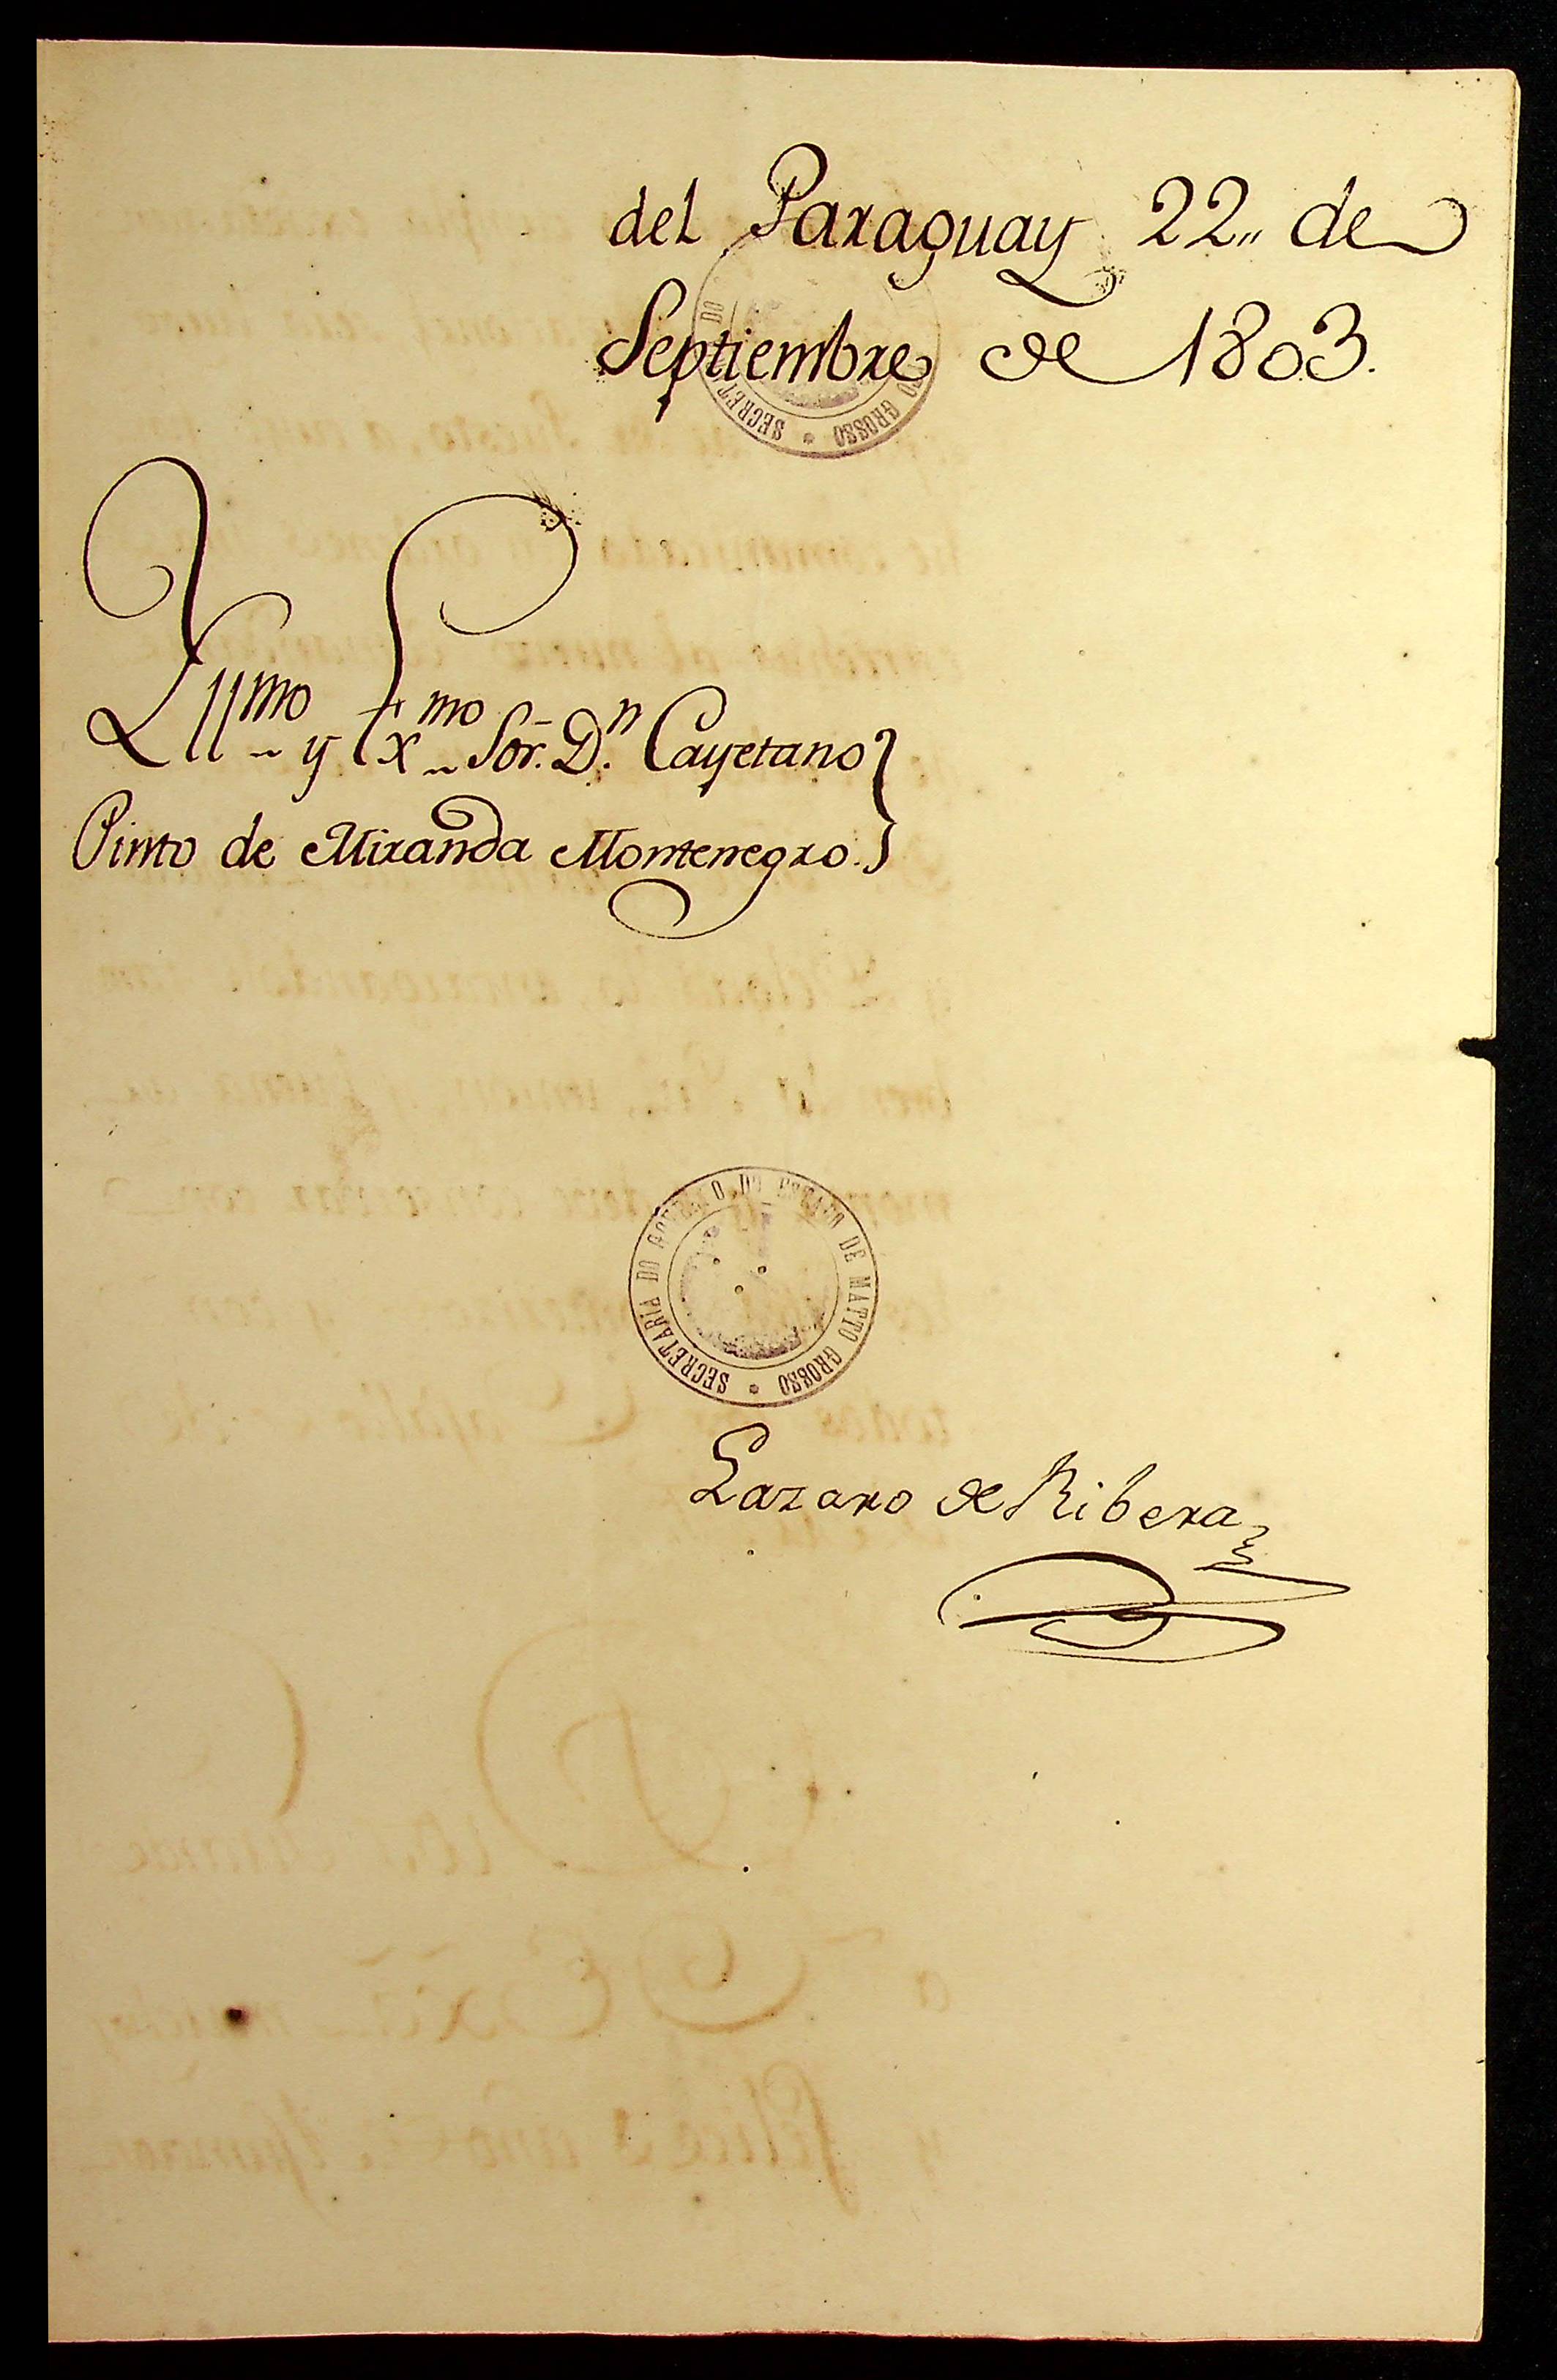 del Paraguay 22,, de
Septiembre de 1803.
Yllmo y Exmo Sor. Dn Cayetano
Pinto de Miranda Montenegro.
SECRETARIA DO GOVERNO DO ESTADO DE MATTO GROSSO
Lazaro de Ribera